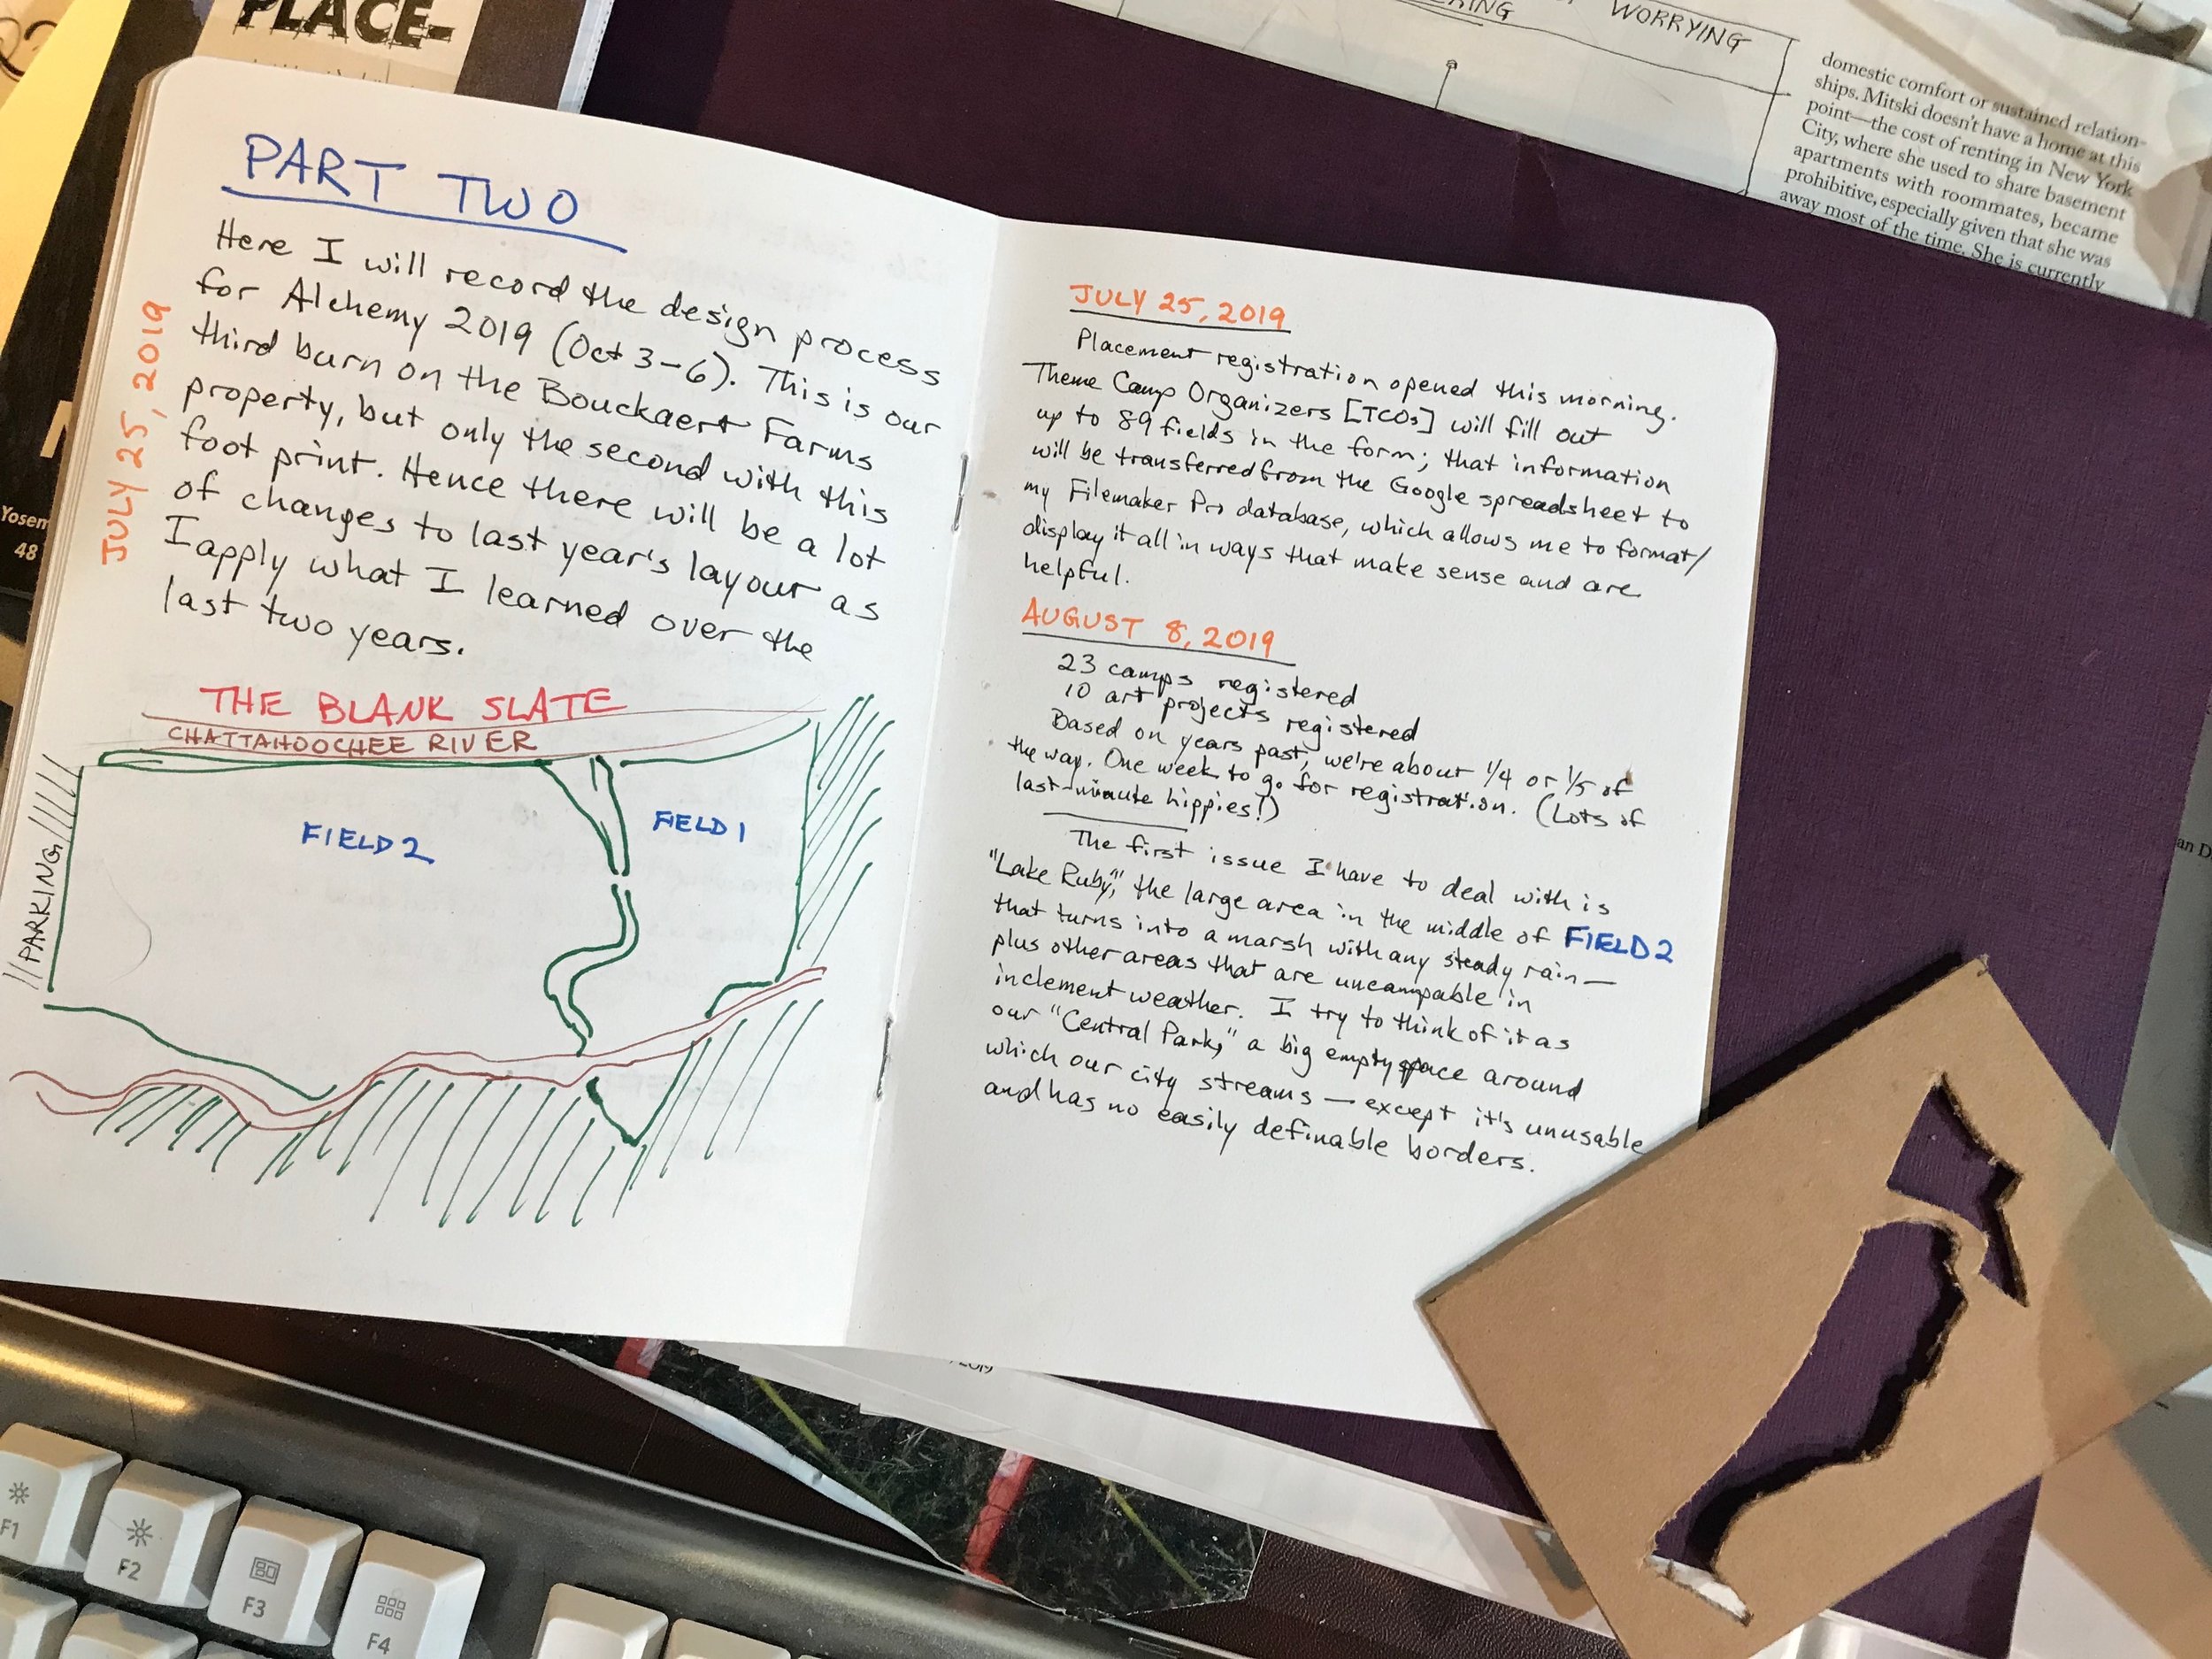 PLACE-
RING
WORRYING
domestic comfort or sustained relation-
ships. Mitski doesn't have a home at this
point—the cost of renting in New York
City, where she used to share basement
apartments with roommates, became
prohibitive, especially given that she was
away most of the time. She is currently
PART TWO
JULY 25, 2019
Here I will record the design process
for Alchemy 2019 (Oct 3-6). This is our
third burn on the Bouckaert Farms
property, but only the second with this
foot print. Hence there will be a lot
of changes to last year's layour as
I apply what I learned over the
last two years.
THE BLANK SLATE
CHATTAHOOCHEE RIVER
PARKING
FIELD 2
FIELD 1
JULY 25, 2019
Placement registration opened this morning.
Theme Camp Organizers [TCOs] will fill out
up to 89 fields in the form; that information
will be transferred from the Google spreadsheet to
my Filemaker Pro database, which allows me to format/
display it all in ways that make sense and are
helpful.
AUGUST 8, 2019
23 camps registered
10 art projects registered
Based on years past, we're about 1/4 or 1/5 of
the way. One week to go for registration. (Lots of
last-minute hippies!)
The first issue I have to deal with is
"Lake Ruby," the large area in the middle of FIELD 2
that turns into a marsh with any steady rain—
plus other areas that are uncampable in
inclement weather. I try to think of it as
our "Central Park," a big empty space around
which our city streams — except it's unusable
and has no easily definable borders.
Yosem
48
an D
2019
F1
F2
F3
F4